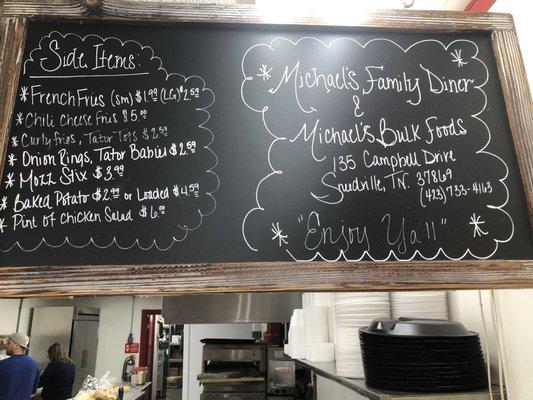 Side Items:
* French Fries (sm) $1.99 (LG) $2.59
* Chili cheese Fries $5.00
* Curly fries, Tator Tots $2.59
* Onion Rings, Tator Babies $2.59
* Mozz Stix $3.99
* Baked Potato $2.99 or Loaded $4.59
* Pint of Chicken Salad $6.00
* Michael's Family Diner *
&
Michael's Bulk Foods
135 Campbell Drive
Sneedville, TN. 37869
(423) 733-4163
* "Enjoy Ya'll" *